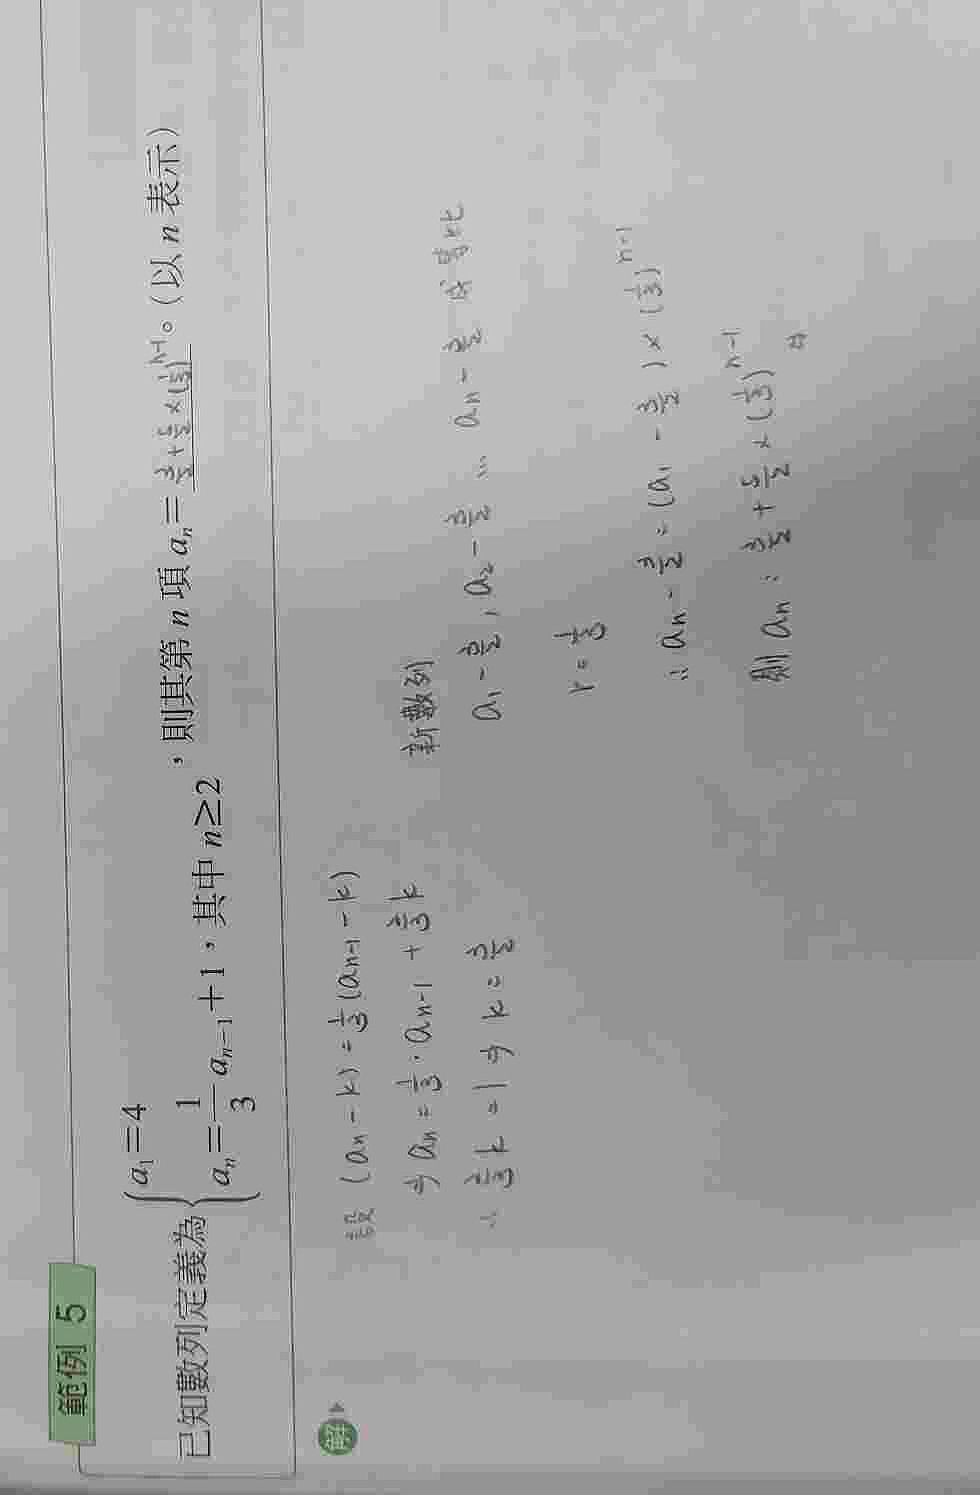 範例 5
已知數列定義為 { a₁=4
aₙ=1/3 aₙ₋₁+1，其中 n≥2 ，則其第 n 項 aₙ= 3/2+5/2×(1/3)ⁿ⁻¹ 。（以 n 表示）
解
設 (aₙ-k)=1/3(aₙ₋₁-k)
⇒ aₙ=1/3·aₙ₋₁+2/3k
∴ 2/3k=1 ⇒ k=3/2
新數列
a₁-3/2, a₂-3/2 … aₙ-3/2 成等比
r=1/3
∴ aₙ-3/2=(a₁-3/2)×(1/3)ⁿ⁻¹
則 aₙ=3/2+5/2×(1/3)ⁿ⁻¹